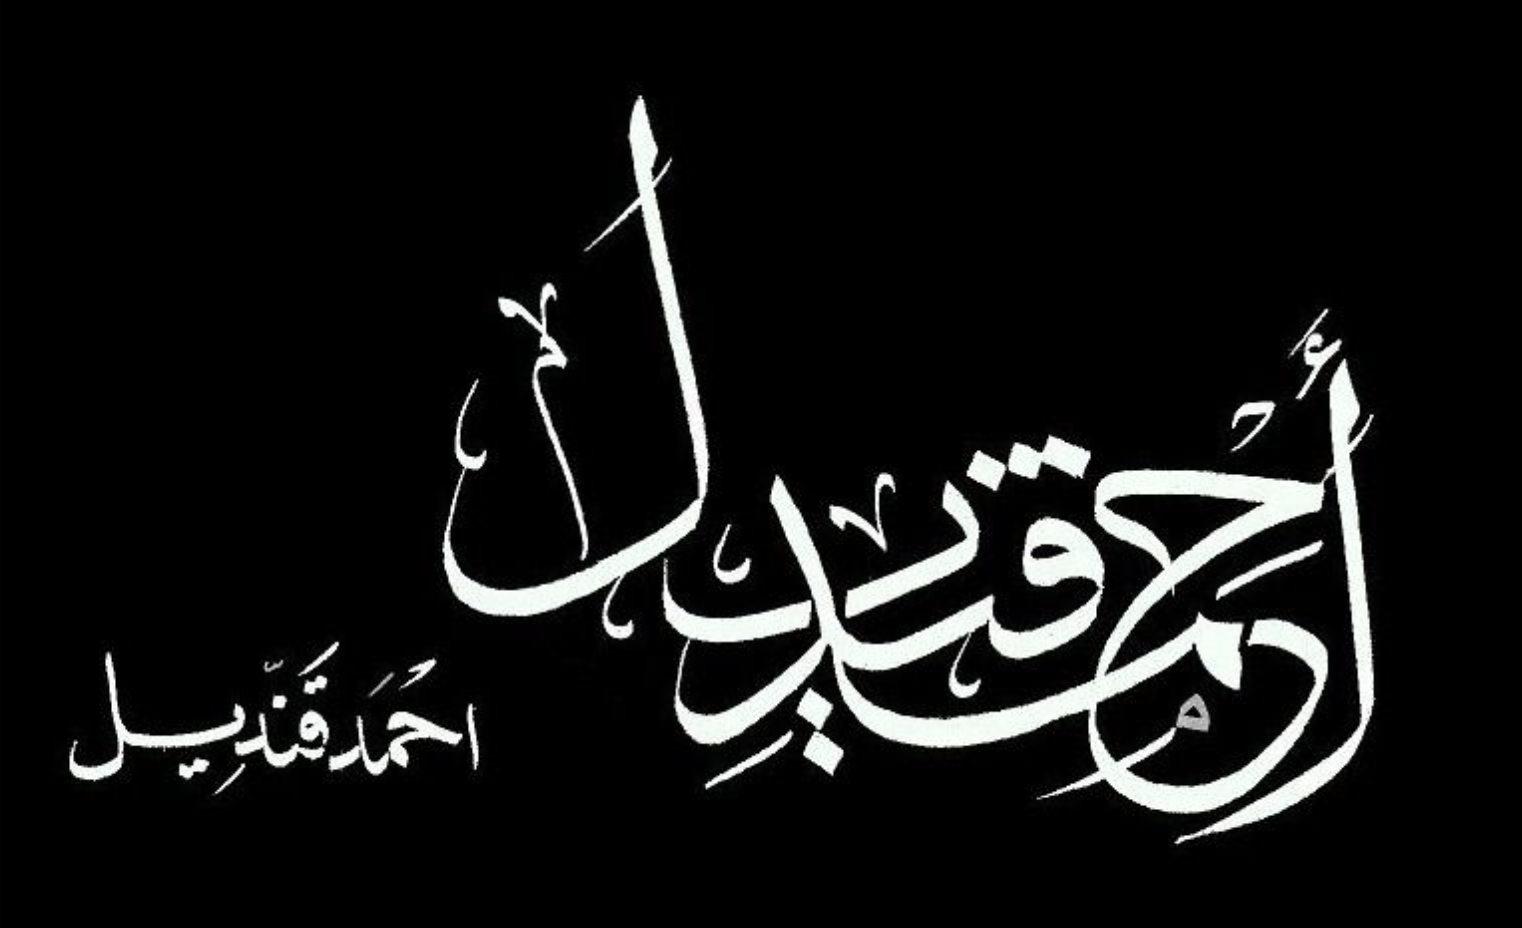 أحمد قنديل
احمد قنديل